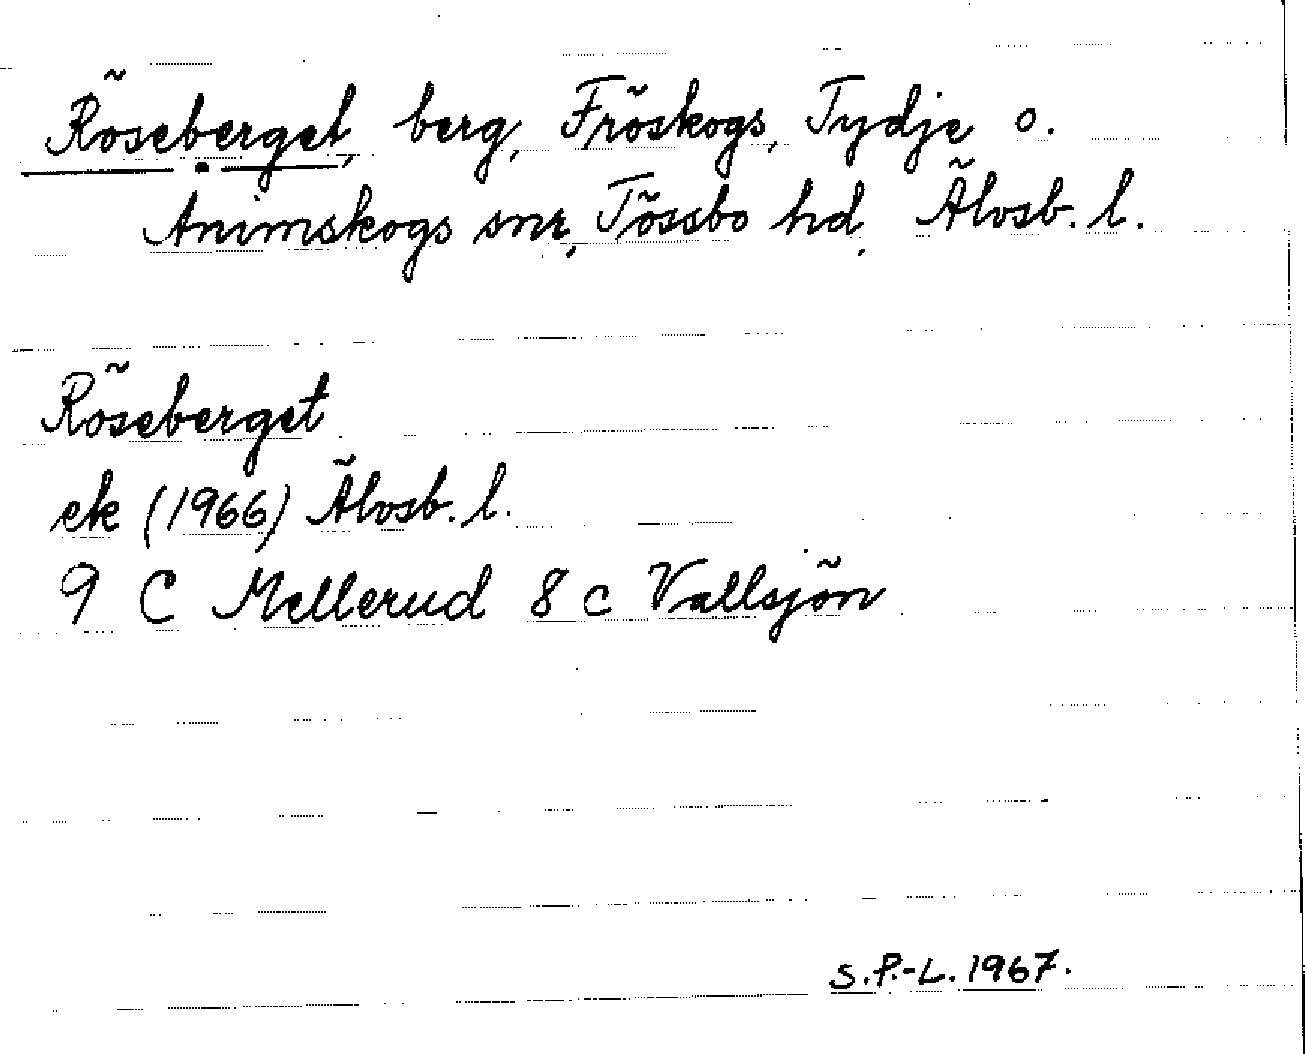 Röseberget, berg, Fröskogs, Tydje o.
Animskogs snr, Tössbo hd, Älvsb. l.
Röseberget
ek (1966) Älvsb. l.
9 C Mellerud 8 c Vallsjön
S.P.-L. 1967.